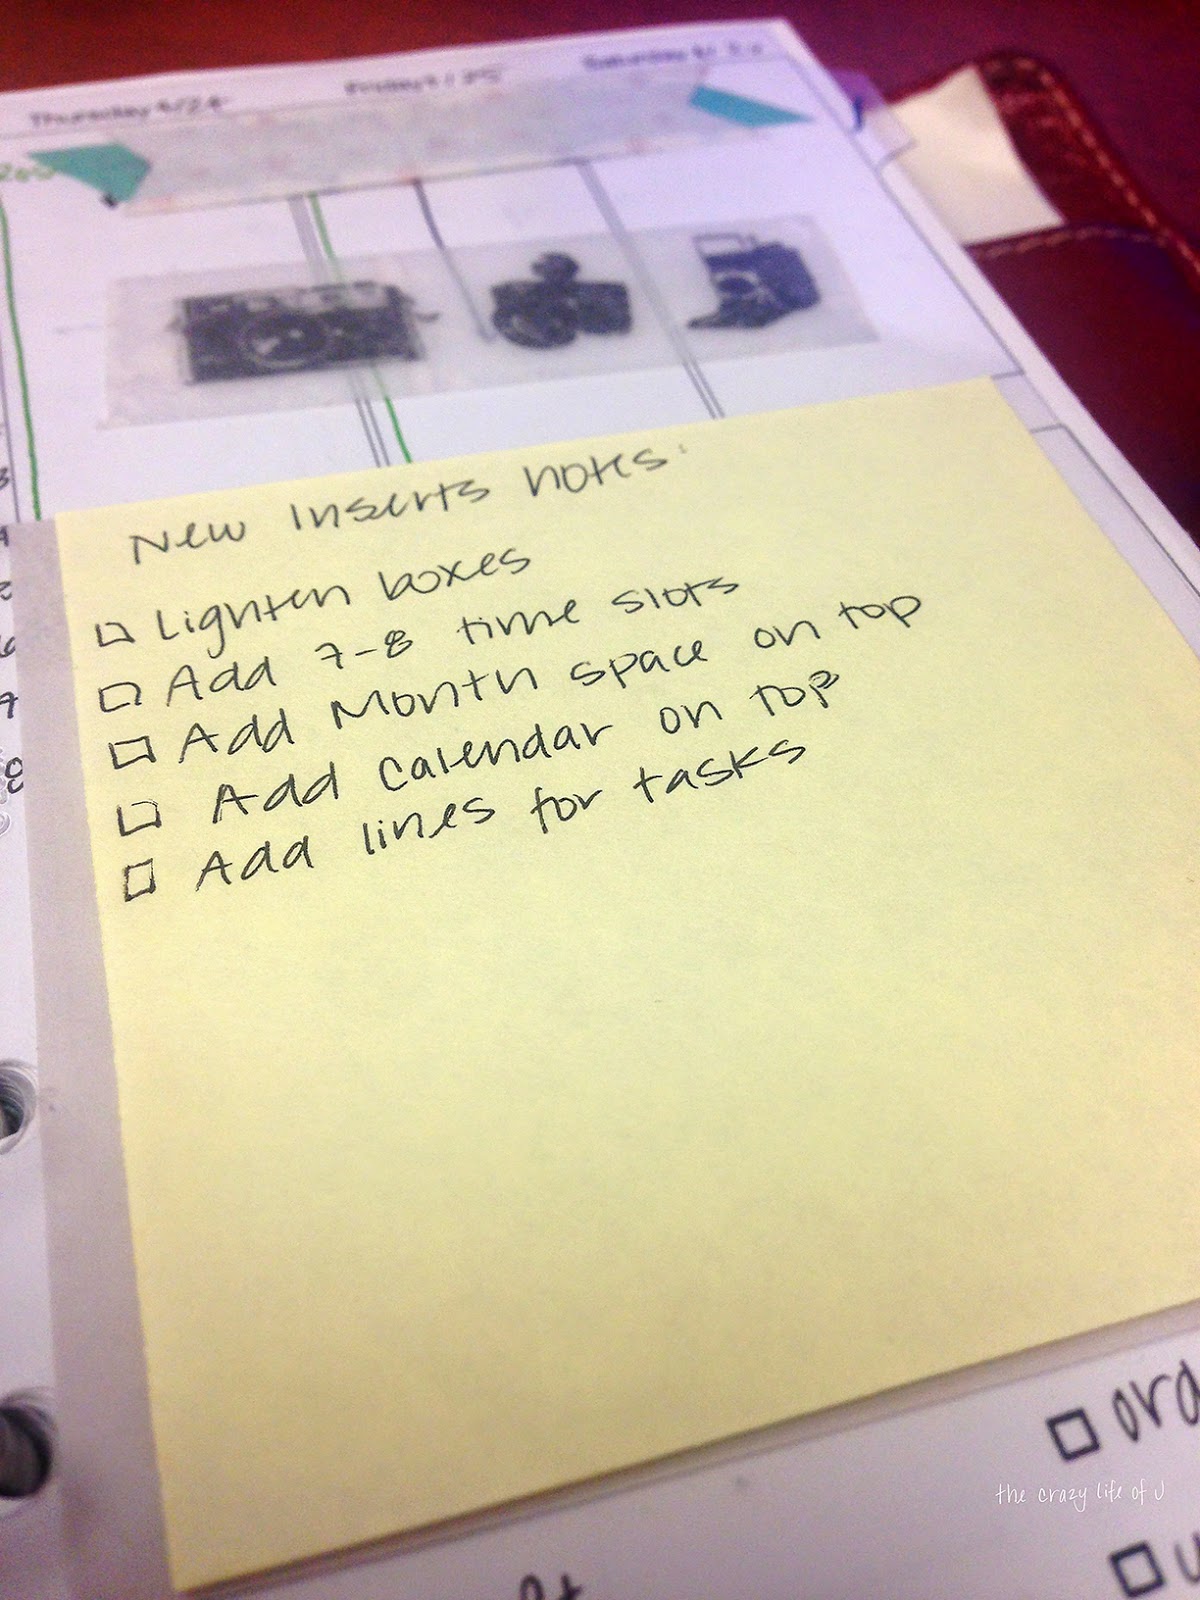 Thursday 4/24
Friday 4/25
Saturday 4/
New Inserts notes:
Lighten boxes
Add 7-8 time slots
Add Month space on top
Add Calendar on top
Add lines for tasks
the crazy life of J